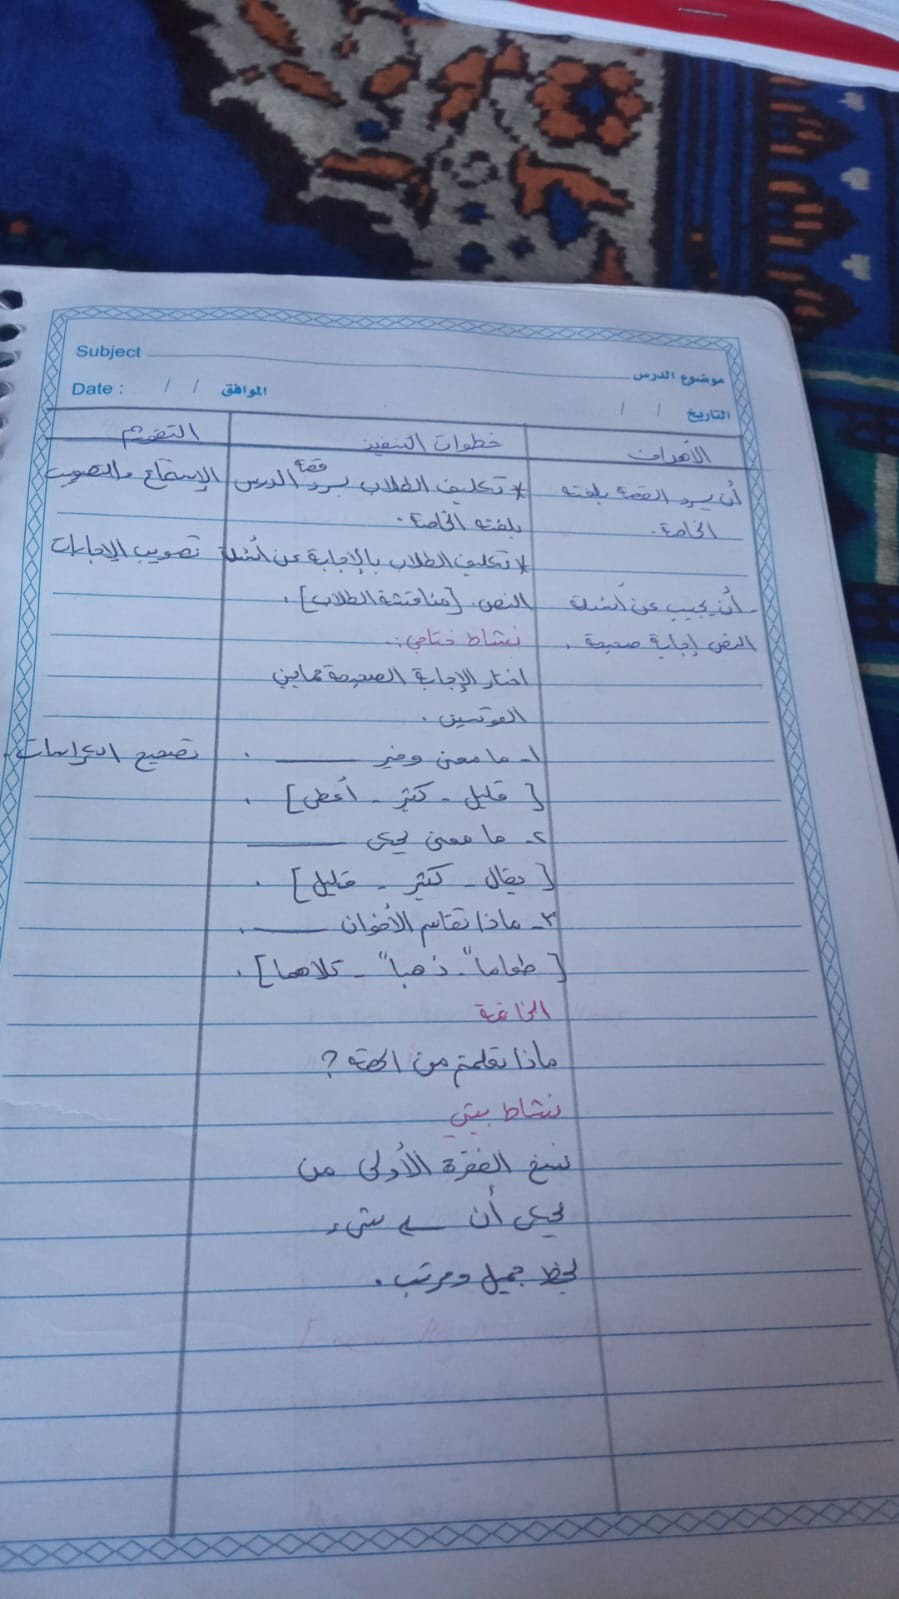 Subject
موضوع الدرس
Date : / / الموافق
التاريخ / /
الأهداف
خطوات التنفيذ
التقويم
أن يسرد القصة بلغته
الخاصة.
أن يجيب عن أسئلة
النص إجابة صحيحة .
* تكليف الطلاب بسرد قصة الدرس
بلغته الخاصة .
* تكليف الطلاب بالإجابة عن أسئلة
النص. [مناقشة الطلاب] .
نشاط ختامي :
اختار الإجابة الصحيحة مما بين
القوسين .
١- ما معنى وفير ـــــ .
[ قليل - كثير - أعطى ] .
٢- ما معنى يحكى ـــــ
[ يقال - كثير - قليل ] .
٣- ماذا تقاسم الأخوان ـــــ .
[ طعاماً - ذهباً - كلاهما ] .
الخاتمة
ماذا تعلمتم من ؟
نشاط بيتي
نسخ الفقرة الأولى من
يحكى أن ـــ شيء
بخط جميل ومرتب .
الإستماع والتصويب
تصويب الإجابات
تصحيح الكراسات .